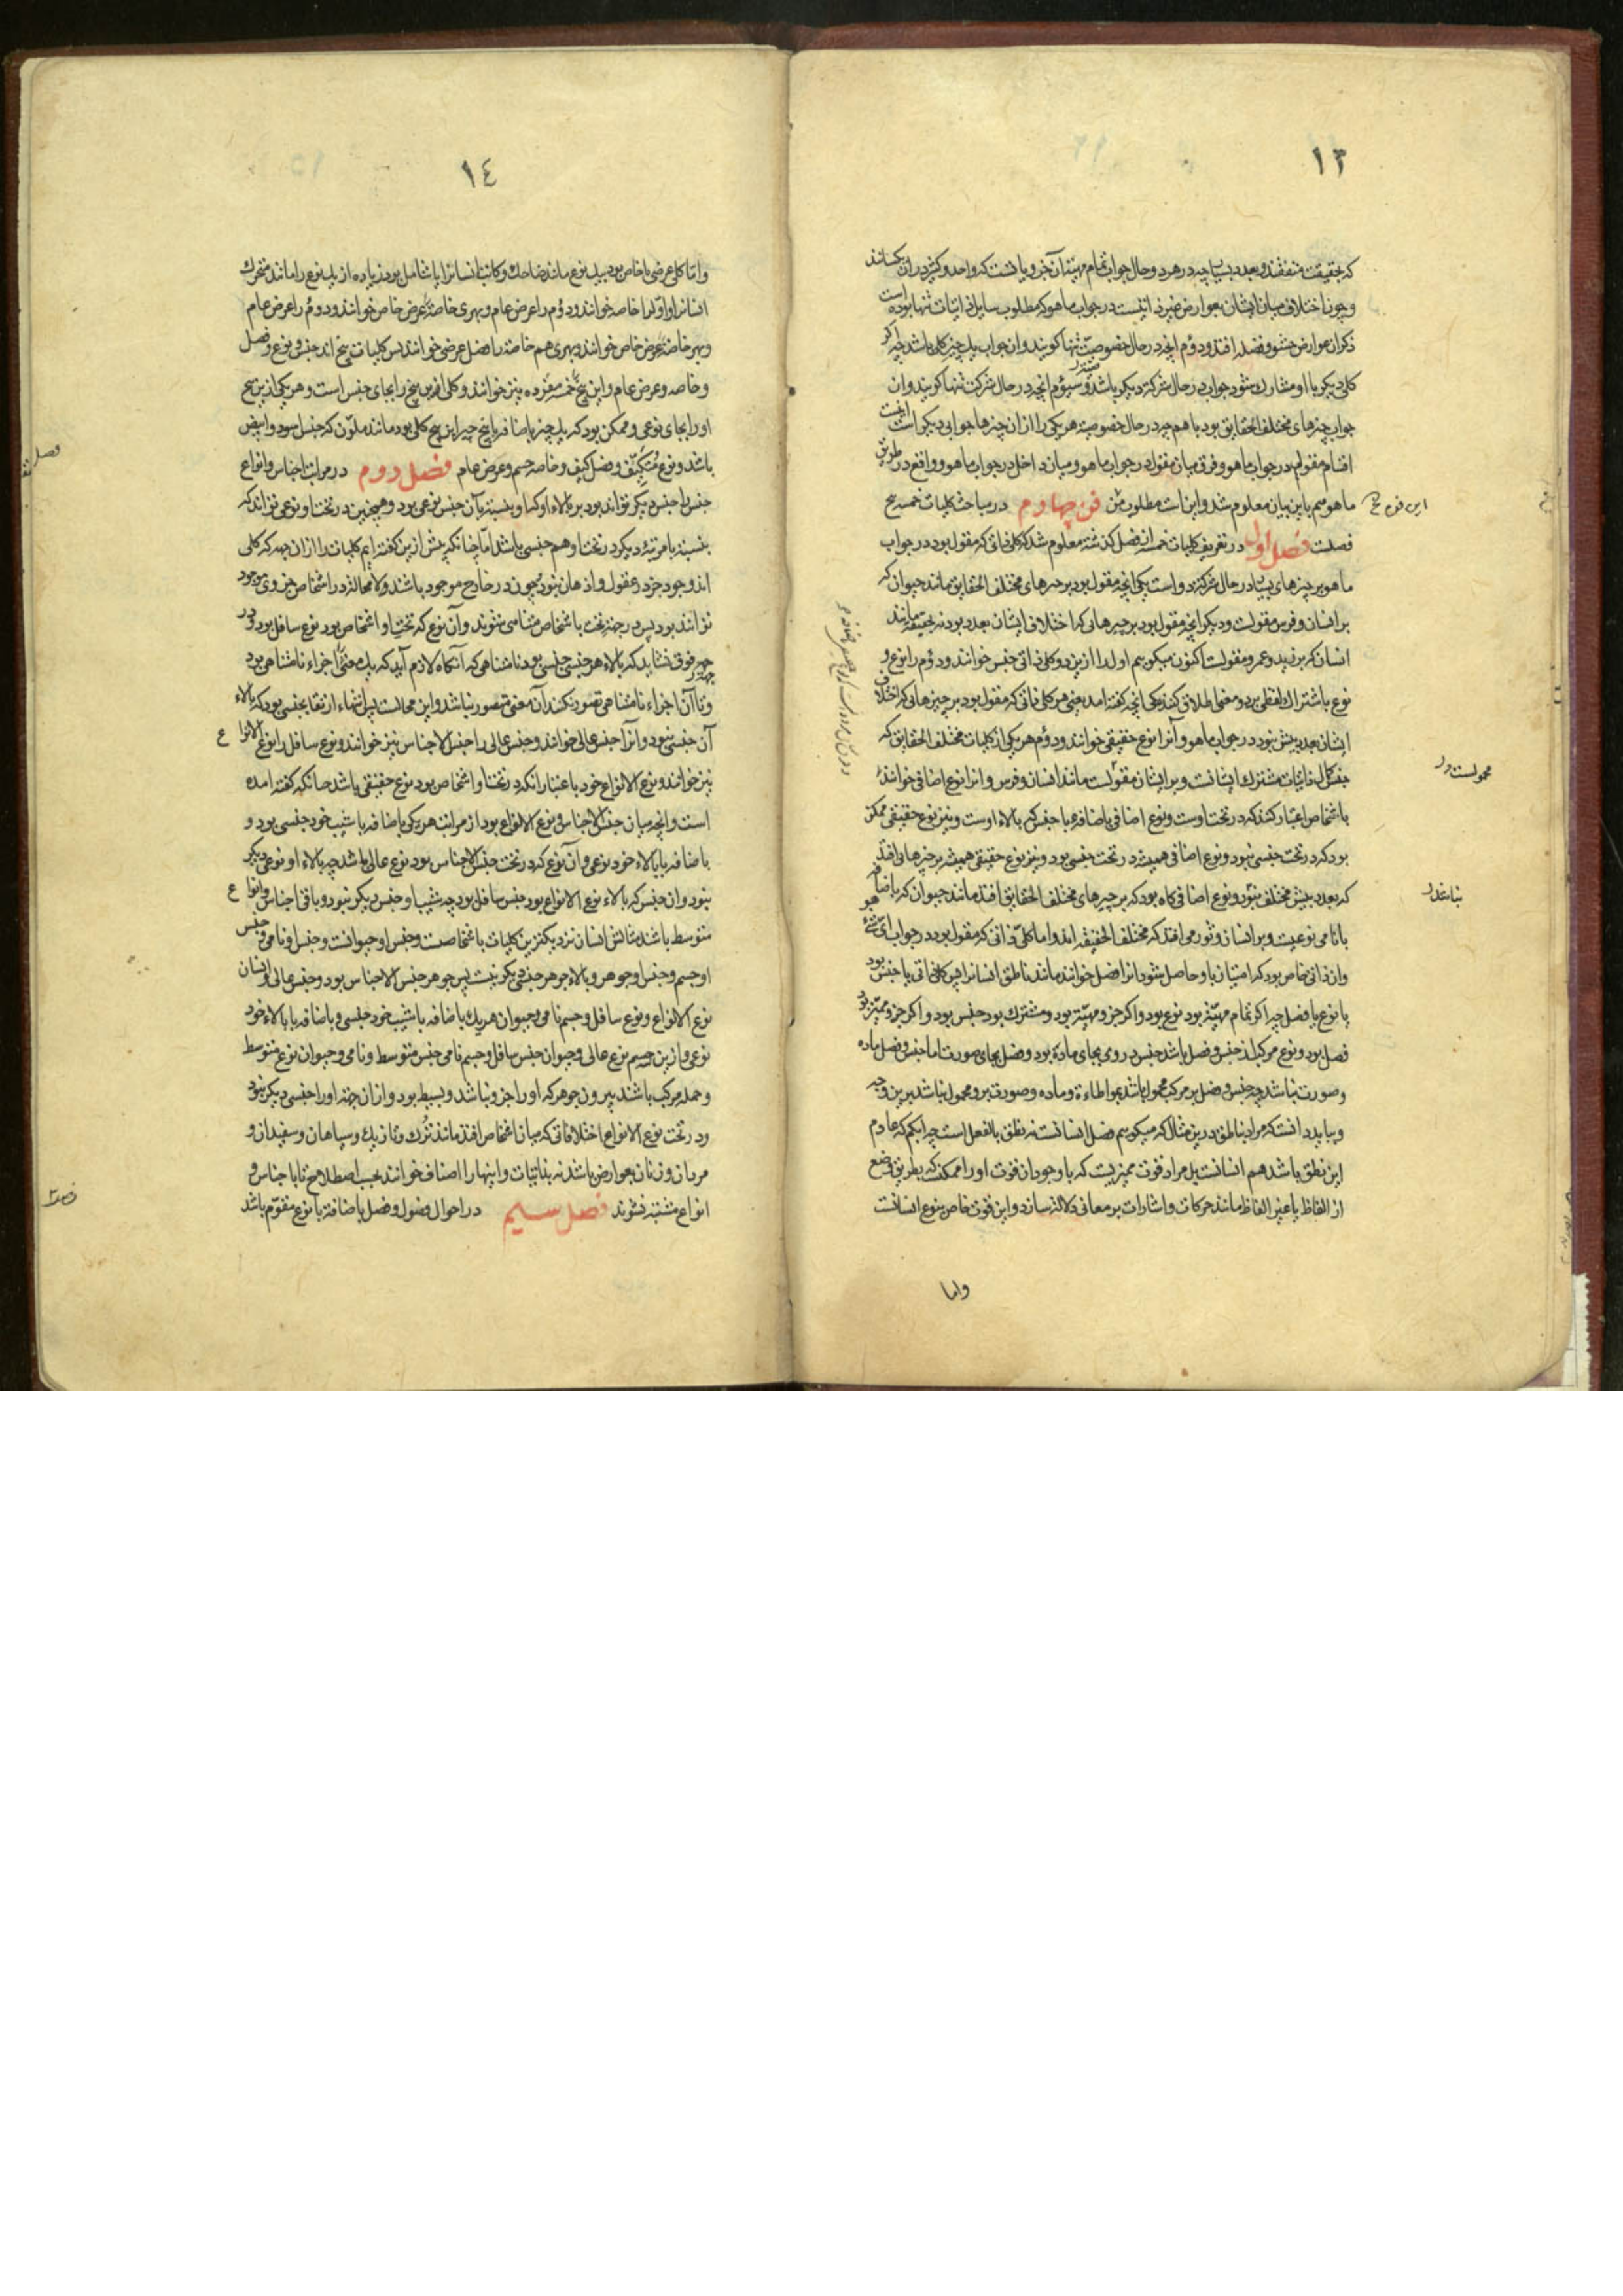 ١٣
که بحقیقت متفقند و بعدد بسیار چه در هر دو حال جواب تمام مهیت آن جزویاتست که واحد و کثیر در آن یکسانند
و چون اختلاف میان ایشان بعوارض غیر ذاتیست در جواب ماهو که مطلوب سایل ذاتیات تنها بوده است
ذکر آن عوارض حشو و فضله افتد و دوم انچه در حال خصوصیت تنها گویند و ان جواب یک چیز کلی باشد چه اگر
کلی دیگر با او مشارک شود جواب در حال شرکة دیگر باشد و سیوم انچه در حال شرکت تنها گویند و ان
جواب چیزهای مختلف الحقایق بود با هم چه در حال خصوصیة هر یکی را از ان چیزها جوابی دیگر است اینست
اقسام مقول در جواب ماهو و فرق میان مقول در جواب ماهو و میان داخل در جواب ماهو و واقع در طریق
ماهو هم باین بیان معلوم شد و اینست مطلوب من فن چهارم در مباحث کلیات خمسه پنج
فصلت فصل اول در تعریف کلیات خمسه از فصل گذشته معلوم شد که کلی ذاتی که مقول بود در جواب
ماهو بر چیزهای بسیار در حال شرکة دو است یکی انچه مقول بود بر چیزهای مختلف الحقایق مانند حیوان که
بر انسان و فرس مقولست و دیگر انچه مقول بود بر چیزهائی که اختلاف ایشان بعدد بود نه بحقیقة مانند
انسان که بر زید و عمرو مقولست اکنون میگوییم اول را ازین دو کلی ذاتی جنس خوانند و دوم را نوع و
نوع باشتراک لفظی بر دو معنی اطلاق کنند یکی انچه گفته امد یعنی هر کلی ذاتی که مقول بود بر چیزهائی که اختلاف
ایشان بعدد بیش نبود در جواب ماهو و آنرا نوع حقیقی خوانند و دوم هر یکی از کلیات مختلف الحقایق که
جنس کمال ذاتیات مشترک ایشانست و بر ایشان مقولست مانند انسان و فرس و انرا نوع اضافی خوانند
باشخاص اعتبار کنند که در تحت اوست و نوع اضافی باضافه با جنس که بالاء اوست و نیز نوع حقیقی ممکن
بود که در تحت جنسی نبود و نوع اضافی همیشه در تحت جنسی بود و نیز نوع حقیقی همیشه بر چیزهائی افتد
که بعدد بیش مختلف نبود و نوع اضافی گاه بود که بر چیزهای مختلف الحقایق افتد مانند حیوان که باضافه
با نامی نوعیست و بر انسان و ثور می افتد که مختلف الحقیقه اند و اما کلی ذاتی که مقول بود در جواب ای شیٔ هو
وان ذاتی خاص بود که امتیاز باو حاصل شود انرا فصل خوانند مانند ناطق انسانرا پس کلی ذاتی یا جنس بود
یا نوع یا فصل چه اگر تمام مهیة بود نوع بود و اگر جزو مهیة بود و مشترک بود جنس بود و اگر جزو ممیز بود
فصل بود و نوع مرکب از جنس و فصل باشد جنس در وی بجای ماده بود و فصل بجای صورت اما جنس و فصل ماده
و صورت نباشد چه جنس و فصل بر مرکب محمول باشد بمواطاءة و ماده و صورت برو محمول نباشد برین وجه
و بباید دانست که مراد بناطق درین مثال که میگوییم فصل انسانست نه نطق بالفعل است چه ابکم که عادم
این نطق باشد هم انسانست بل مراد قوت ممیزیست که با وجود ان قوت او را ممکنست که بطریق وضع
از الفاظ یا غیر الفاظ مانند حرکات و اشارات بر معانی دلالة سازد و این قوت خاص بنوع انسانست
واما
این فن پنج
محمولست در
نباشد
١٤
و اما کلی عرضی یا خاص بود بیک نوع مانند ضاحک و کاتب انسانرا یا شامل بود زیاده از یک نوع را مانند متحرک
انسانرا و اول را خاصه خوانند و دوم را عرض عام و بهری خاصة را عرض خاص خوانند و دوم را عرض عام
و بهر خاصة را عرض خاص خوانند و بهری هم خاصة را فصل عرضی خوانند پس کلیات پنج اند جنس و نوع و فصل
و خاصه و عرض عام و این پنج را خمسه مفرده نیز خوانند و کلی ازین پنج را بجای جنس است و هر یکی ازین پنج
او را بجای نوعی و ممکن بود که یک چیز باضافه با پنج چیز این پنج کلی بود مانند ملون که جنس اسود و ابیض
باشد و نوع متکیف و فصل کیف و خاصه جسم و عرض عام فصل دوم در مراتب اجناس و انواع
جنس را جنس دیگر تواند بود بر بالاء او که او بنسبة بآن جنس نوعی بود و همچنین در تحت او نوعی تواند که
بنسبة با مرتبهٔ دیگر در تحت او هم جنسی باشد اما چنانکه پیش ازین گفته ایم کلیات را از ان جهة که کلی
اند وجود جز در عقول و اذهان نبود چون در خارج موجود باشند و لا محالة در اشخاص جزوی موجود
توانند بود پس در جهة تحت باشخاص متناهی شوند و آن نوع که تحت او اشخاص بود نوع سافل بود و در
جهة فوق نشاید که بالاء هر جنسی جنسی بود نامتناهی که آنگاه لازم آید که یک معنی را اجزاء نامتناهی بود
و تا آن اجزاء نامتناهی تصور نکند آن معنی متصور نباشد و این محالست پس انتهاء ارتقا بجنسی بود که بالاء
آن جنسی نبود و آنرا جنس عالی خوانند و جنس عالی را جنس الاجناس نیز خوانند و نوع سافل را نوع الانواع
نیز خوانند و نوع الانواع خود باعتبار آنکه در تحت او اشخاص بود نوع حقیقی باشد چنانکه گفته امده
است و انچه میان جنس الاجناس و نوع الانواع بود از مراتب هر یکی باضافه با شیب خود جنسی بود و
باضافه با بالاء خود نوعی و آن نوع که در تحت جنس الاجناس بود نوع عالی باشد چه بالاء او نوعی دیگر
نبود و ان جنس که بالاء نوع الانواع بود جنس سافل بود چه شیب او جنس دیگر نبود و باقی اجناس و انواع
متوسط باشند مثالش انسان نزدیکترین کلیات باشخاصست و جنس او حیوانست و جنس او نامی و جنس
او جسم و جنس او جوهر و بالاء جوهر جنسی دیگر نیست پس جوهر جنس الاجناس بود و جنس عالی و انسان
نوع الانواع و نوع سافل و جسم نامی و حیوان هر یک باضافه با شیب خود جنسی و باضافه با بالاء خود
نوعی و ازین جسم نوع عالی و حیوان جنس سافل و جسم نامی جنس متوسط و نامی و حیوان نوع متوسط
و جمله مرکب باشند بیرون جوهر که او را جزو نباشد و بسیط بود و از ان جهة او را جنسی دیگر نبود
و در تحت نوع الانواع اختلافاتی که میان اشخاص افتد مانند ترک و تازیک و سیاهان و سفیدان و
مردان و زنان بعوارض باشد نه بذاتیات و اینها را اصناف خوانند بحسب اصطلاح تا با اجناس و
انواع مشتبه نشوند فصل سیم در احوال فصول و فصل باضافة با نوع مقوم باشد
فصل